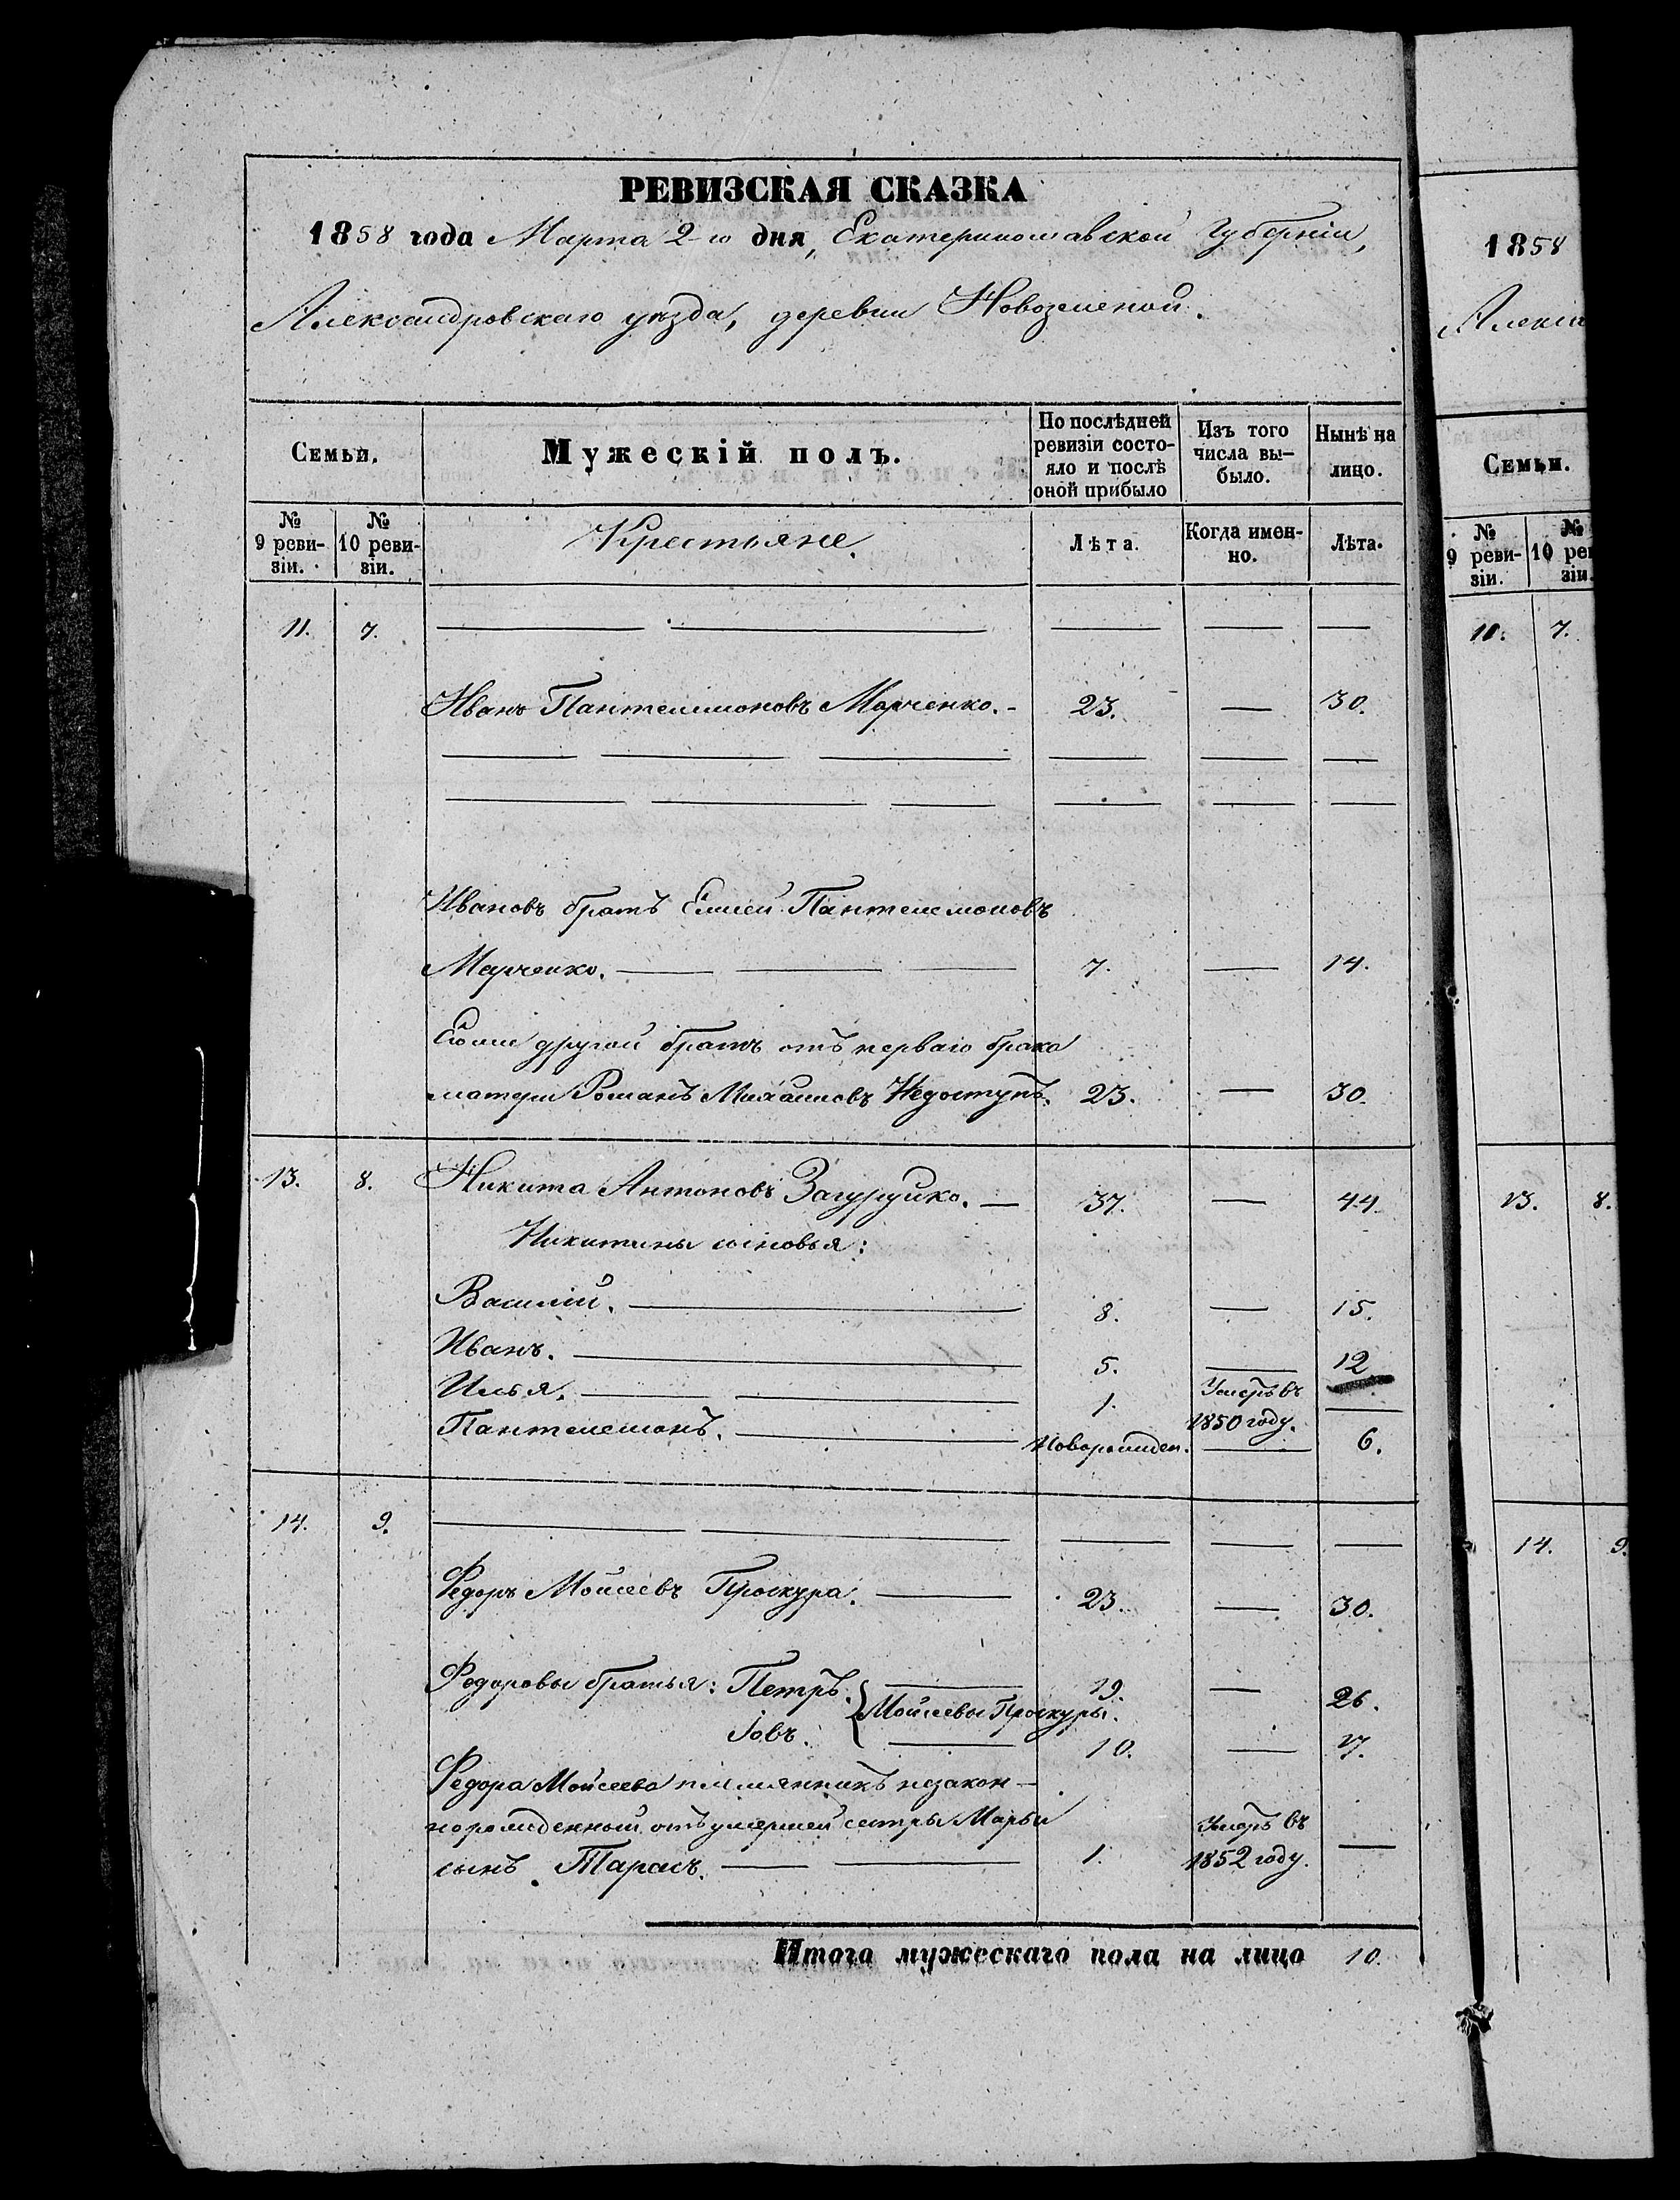 РЕВИЗСКАЯ СКАЗКА
1858 года Марта 2-го дня, Екатеринославской Губерніи,
Александровскаго уѣзда, деревни
Семьи.
Мужескій полъ.
По послѣдней ревизіи состояло и послѣ оной прибыло
Изъ того числа выбыло.
Нынѣ на лицо.
№ 9 ревизіи.
№ 10 ревизіи.
Крестьяне.
Лѣта.
Когда именно.
Лѣта.
11. 7.
Иванъ Пантелимоновъ Марченко. 23. 30.
Ивановъ братъ Елисей Пантелемоновъ
Марченко. 7. 14.
другой братъ отъ перваго брака
матери Романъ Михайловъ Недоступъ. 23. 30.
13. 8. Никита Антоновъ 37. 44.
Никитины сыновья:
Василій. 8. 15.
Иванъ. 5. 12
Илья. 1. Умеръ въ 1850 году.
Пантелемонъ. Новорожден. 6.
14. 9.
Федоръ Моисеевъ Проскура. 23. 30.
Федоровы братья: Петръ. 19. 26.
Моисеевы Проскуры.
Іовъ. 10. 17.
Федора Моисеева племянникъ незакон-
норожденный отъ умершей сестры Марьи
сынъ Тарасъ. 1. Умеръ въ 1852 году.
Итого мужескаго пола на лицо 10.
1858
Алекса
Семьи.
№ 9 ревизіи.
№ 10 реви зіи.
11. 7.
13. 8.
14. 9.